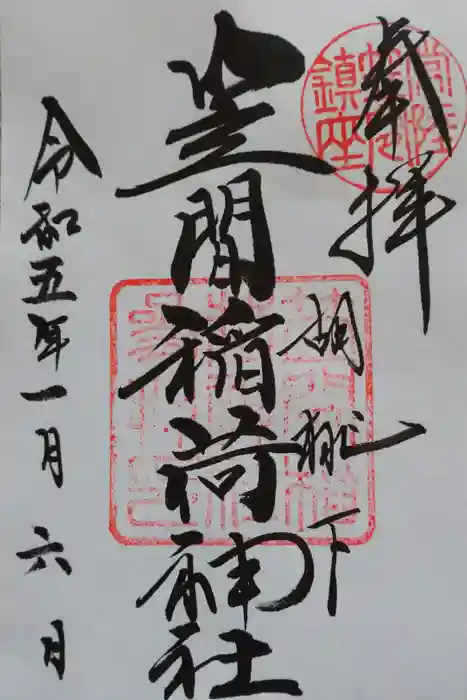 奉拝
常陸
鎮座
胡桃下
笠間稲荷神社
令和五年一月六日